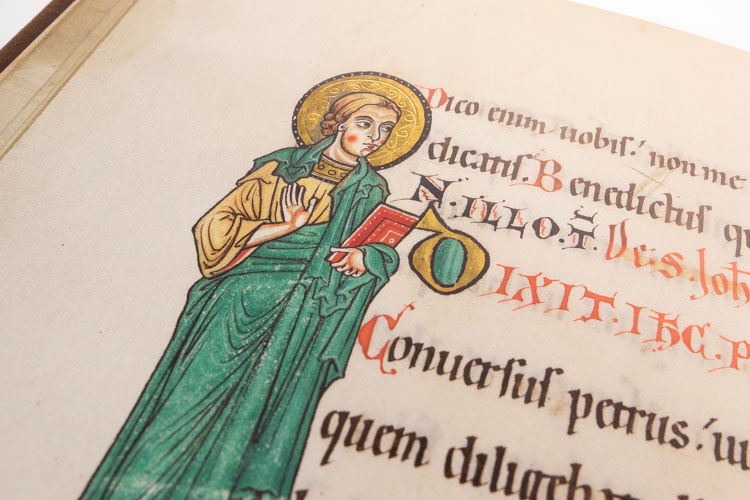 Dico enim uobis: non me
dicatis. Benedictus qu
N. ILLO. T̄. Dr. S. Joh
DIXIT. IHC. P
Conuersus petrus: ui
quem diligeb